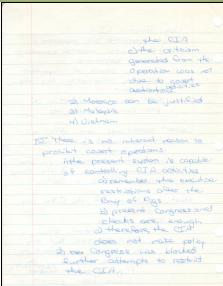 the CIA
c) the criticism
generated from the
operation was not
due to covert
activities
2) Morocco can be justified
3) Malaysia
4) Vietnam
II There is no inherent reason to
prohibit covert operations
1) the present system is capable
of controlling CIA activities
a) remember the executive
restrictions after the
Bay of Pigs
b) present Congressional
checks are enough
c) therefore the CIA
does not make policy
2) Congress has blocked
further attempts to restrict
the CIA